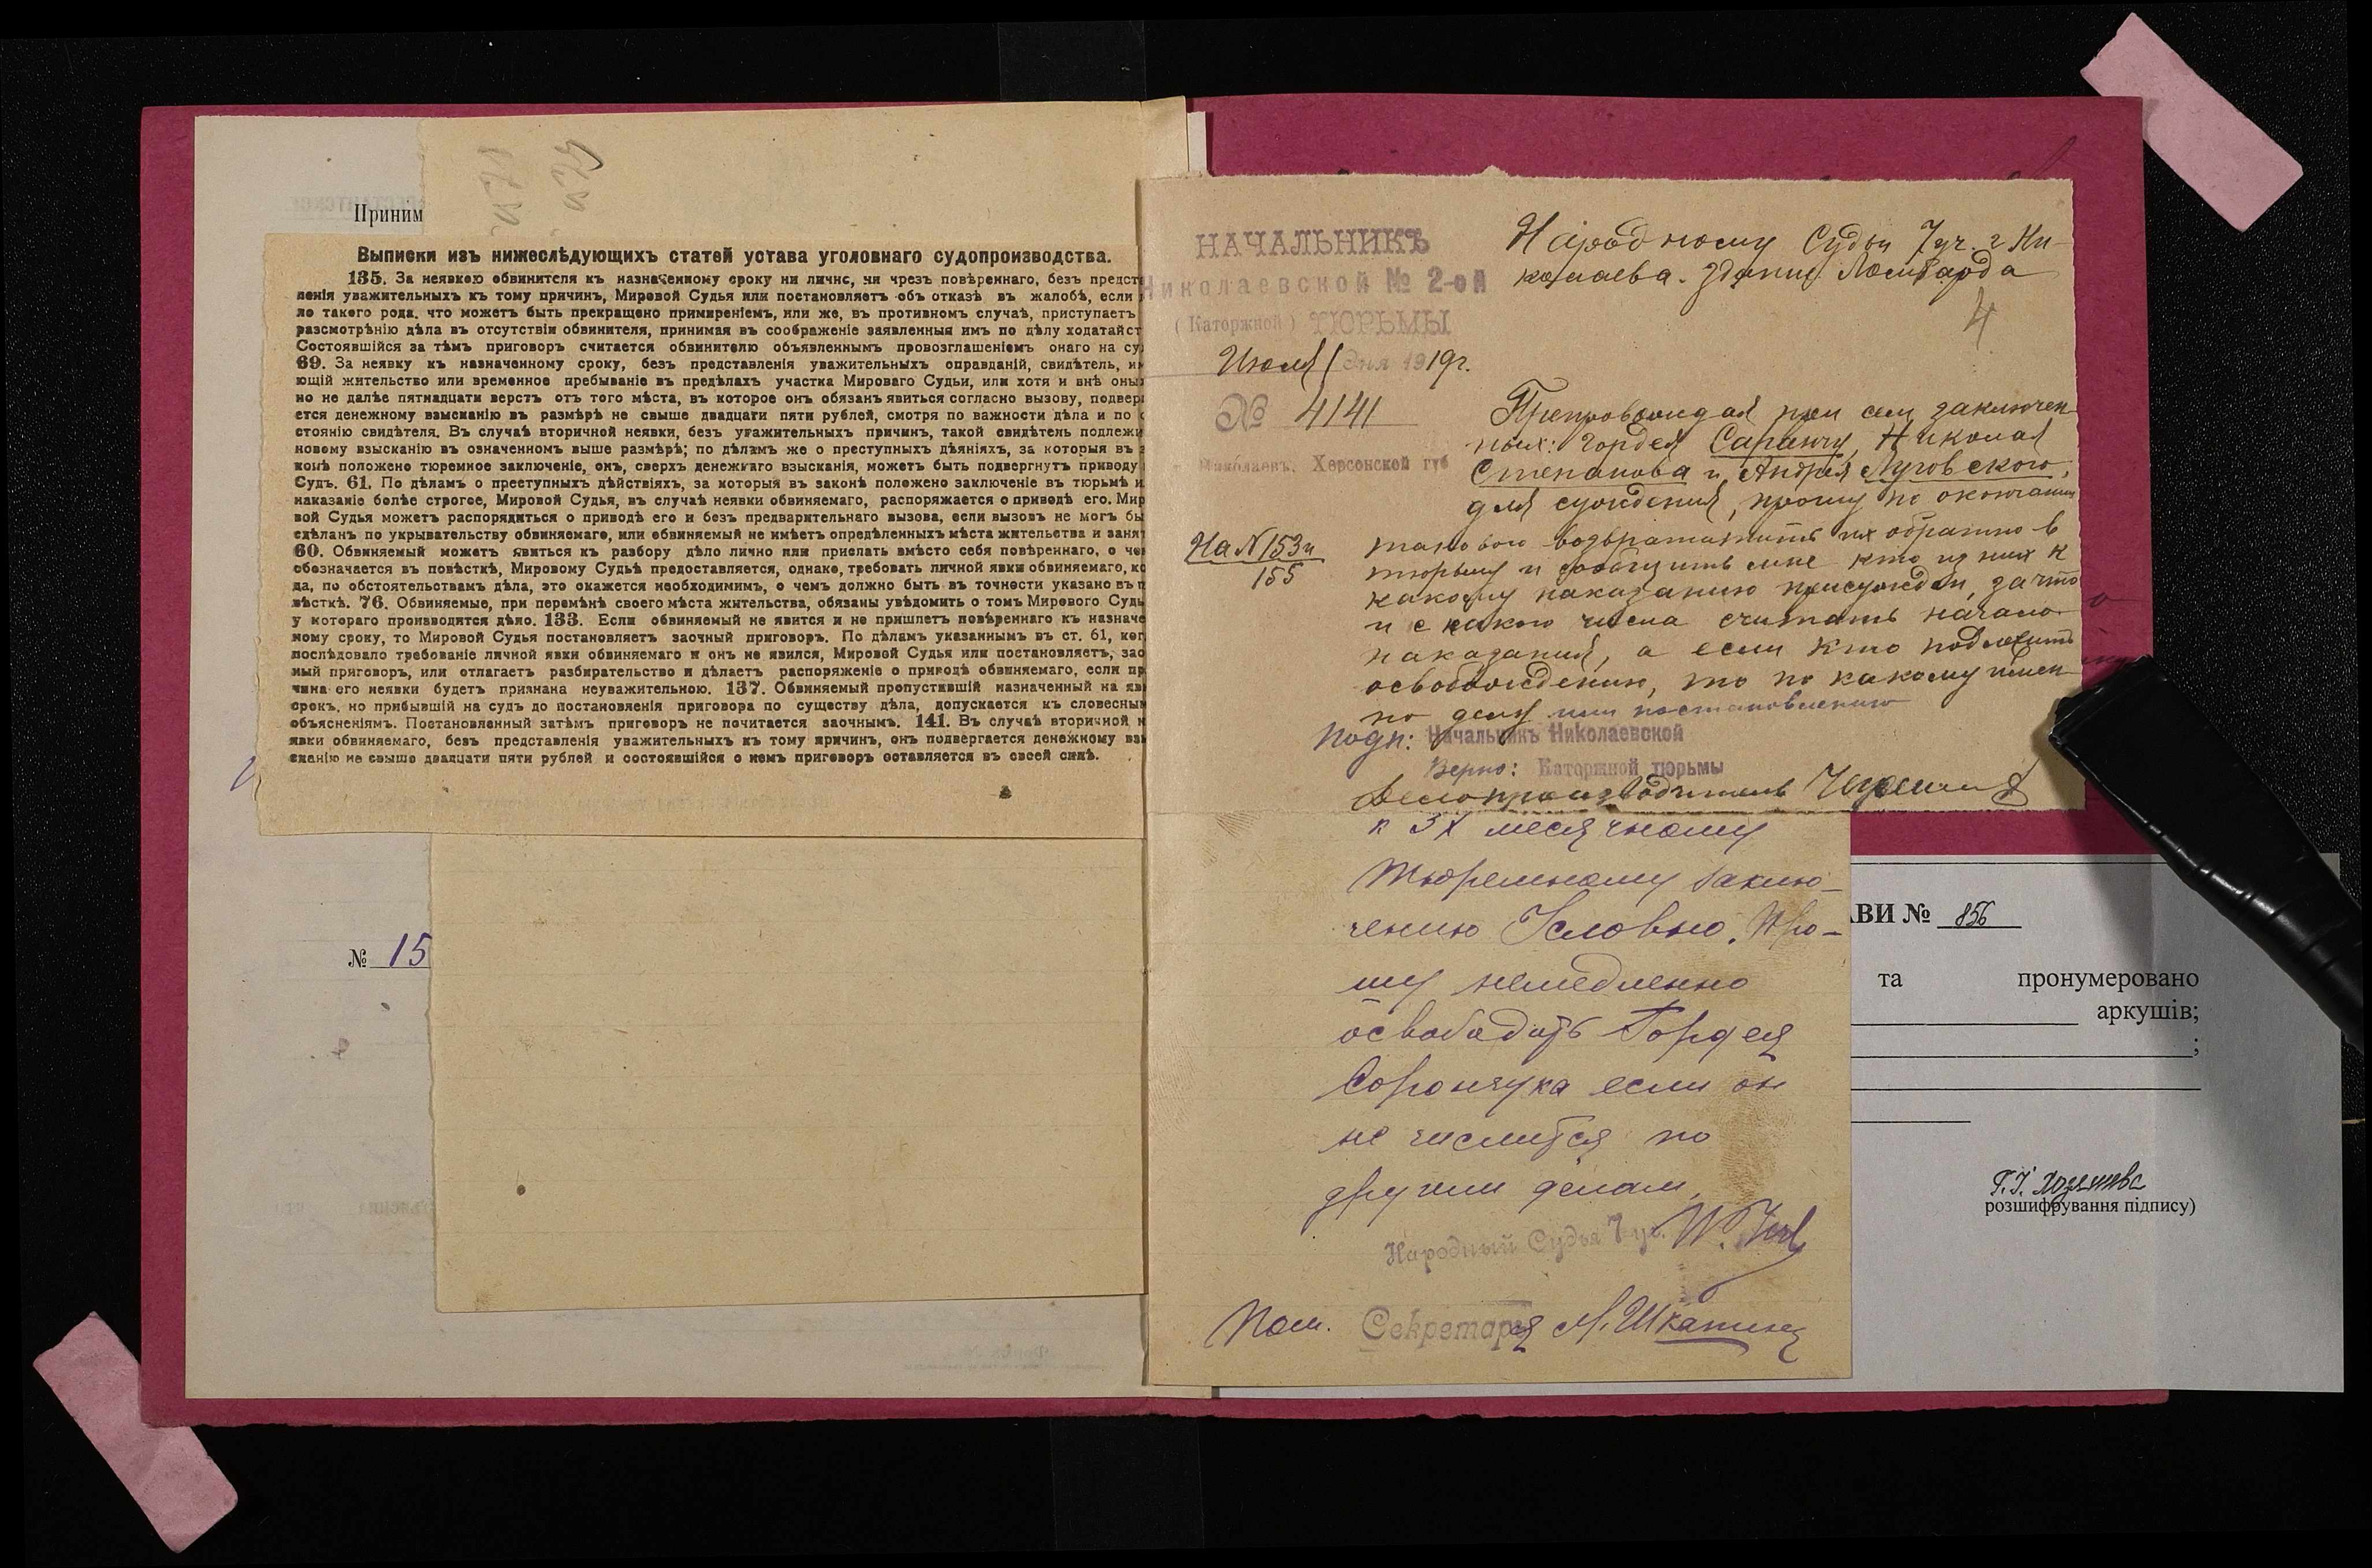 Приним
Выписки изъ нижеслѣдующихъ статей устава уголовнаго судопроизводства.
135. За неявкою обвинителя къ назначенному сроку ни личнс, ни чрезъ повѣреннаго, безъ предст
ленія уважительныхъ къ тому причинъ, Мировой Судья или постановляетъ объ отказѣ въ жалобѣ, если
ло такого рода. что можетъ быть прекращено примиреніемъ, или же, въ противномъ случаѣ, приступаетъ
разсмотрѣнію дѣла въ отсутствіи обвинителя, принимая въ соображеніе заявленныя имъ по дѣлу ходатайст
Состоявшійся за тѣмъ приговоръ считается обвинителю объявленнымъ провозглашеніемъ онаго на су
69. За неявку къ назначенному сроку, безъ представленія уважительныхъ оправданій, свидѣтель, и
ющій жительство или временное пребываніе въ предѣлахъ участка Мироваго Судьи, или хотя и внѣ оны
но не далѣе пятнадцати верстъ отъ того мѣста, въ которое онъ обязанъ явиться согласно вызову, подвер
ется денежному взысканію въ размѣрѣ не свыше двадцати пяти рублей, смотря по важности дѣла и по с
стоянію свидѣтеля. Въ случаѣ вторичной неявки, безъ уважительныхъ причинъ, такой свидѣтель подлежи
новому взысканію въ означенномъ выше размѣрѣ; по дѣламъ же о преступныхъ дѣяніяхъ, за которыя въ з
конѣ положено тюремное заключеніе, онъ, сверхъ денежнаго взысканія, можетъ быть подвергнутъ приводу
Судъ. 61. По дѣламъ о преступныхъ дѣйствіяхъ, за который въ законѣ положено заключеніе въ тюрьмѣ и
наказаніе болѣе строгое, Мировой Судья, въ случаѣ неявки обвиняемаго, распоряжается о приводѣ его. Мир
вой Судья можетъ распорядиться о приводѣ его и безъ предварительнаго вызова, если вызовъ не могъ бы
сдѣланъ по укрывательству обвиняемаго, или обвиняемый не имѣетъ опредѣленныхъ мѣста жительства и заня
60. Обвиняемый можетъ явиться къ разбору дѣло лично или прислать вмѣсто себя повѣреннаго, о че
обозначается въ повѣсткѣ, Мировому Судьѣ предоставляется, однако, требовать личной явки обвиняемаго, ко
да, по обстоятельствамъ дѣла, это окажется необходимымъ, о чемъ должно быть въ точности указано въ п
вѣсткѣ. 76. Обвиняемые, при перемѣнѣ своего мѣста жительства, обязаны увѣдомить о томъ Мирового Судь
у котораго производится дѣло. 133. Если обвиняемый не явится и не пришлетъ повѣреннаго къ назначе
ному сроку, то Мировой Судья постановляетъ заочный приговоръ. По дѣламъ указаннымъ въ ст. 61, ког
послѣдовало требованіе личной явки обвиняемаго и онъ не явился, Мировой Судья или постановляетъ, зао
ный приговоръ, или отлагаетъ разбирательство и дѣлаетъ распоряженіе о приводѣ обвиняемаго, если пр
чина его неявки будетъ признана неуважительною. 137. Обвиняемый пропустившій назначенный на яв
срокъ, но прибывшій на судъ до постановленія приговора по существу дѣла, допускается къ словесным
объясненіямъ. Постановленный затѣмъ приговоръ не почитается заочнымъ. 141. Въ случаѣ вторичной н
явки обвиняемаго, безъ представленія уважительныхъ къ тому причинъ, онъ подвергается денежному вз
сканію не свыше двадцати пяти рублей и состоявшійся о немъ приговоръ оставляется въ своей силѣ.
№ 15
НАЧАЛЬНИКЪ
Николаевской № 2-ой
(Каторжной) ТЮРЬМЫ
Июля 1 дня 1919г.
№ 4141
Николаевъ, Херсонской губ
На № 153 и
155
Народному Судьи 7 уч. г Ни-
колаева. здание Ломбарда
4
Препровождая при сем заключен-
ных: Гордея Саранчу, Николая
Степанова и Андрея Луговского,
для суждения, прошу по окончании
такового возвратить их обратно в
тюрьму и сообщить мне кто из них к
какому наказанию присужден, за что
и с какого числа считать начало
наказания, а если кто подлежит
освобождению, то по какому имен-
но делу или постановлению
Подп: Начальникъ Николаевской
Верно: Каторжной тюрьмы
Делопроизводитель
к 3х месячному
тюремному заклю-
чению Условно. Про-
шу немедленно
освободить Гордея
Сорончука если он
не числится по
другим делам.
Народный Судья 7 уч.
Пом. Секретаря М. Шкапинец
АВИ № 856
та пронумеровано
аркушів;
;
розшифрування підпису)